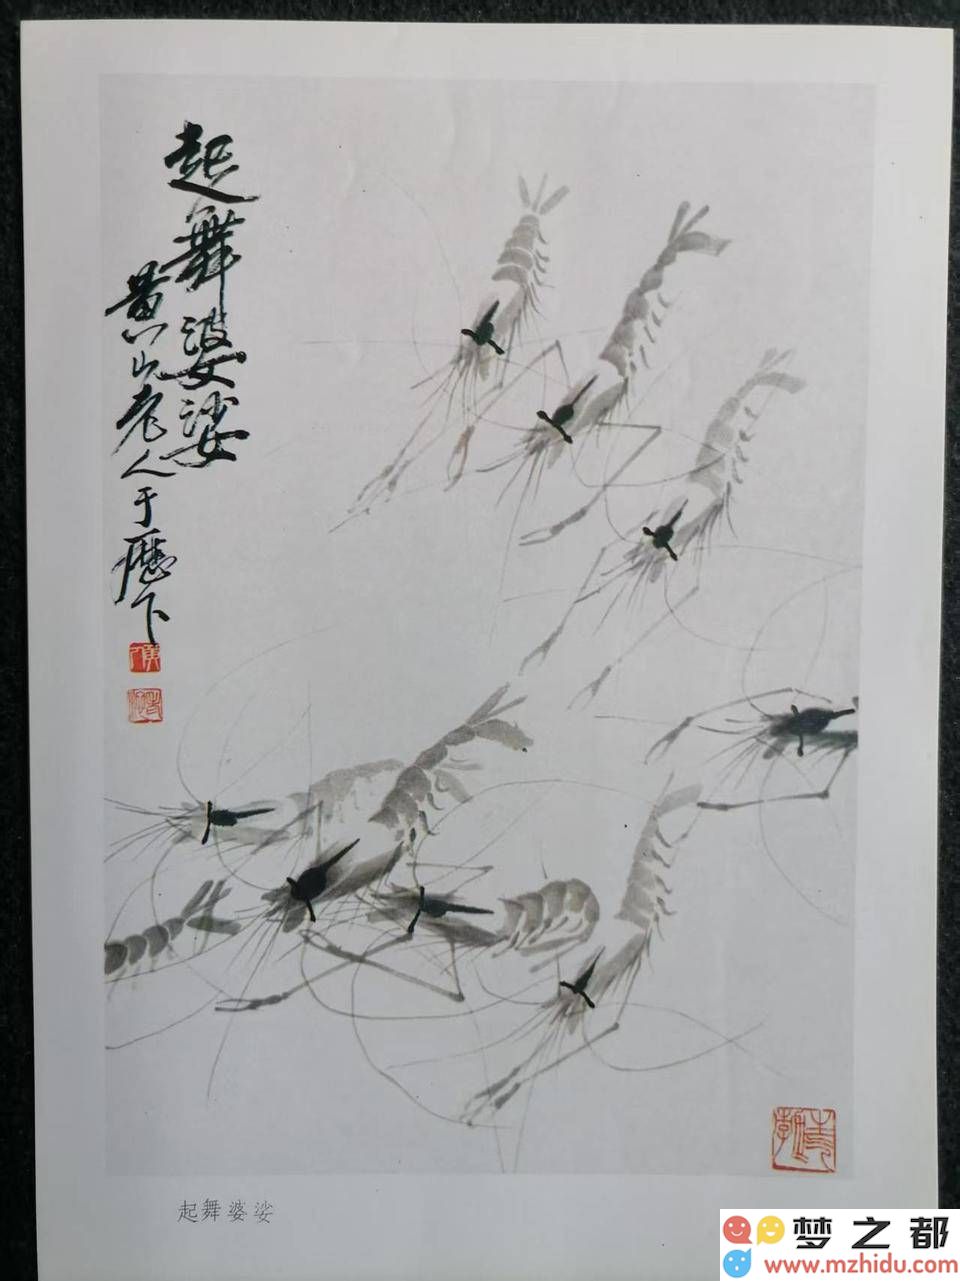 起舞婆娑
黄山老人于历下
起舞婆娑
梦之都
www.mzhidu.com